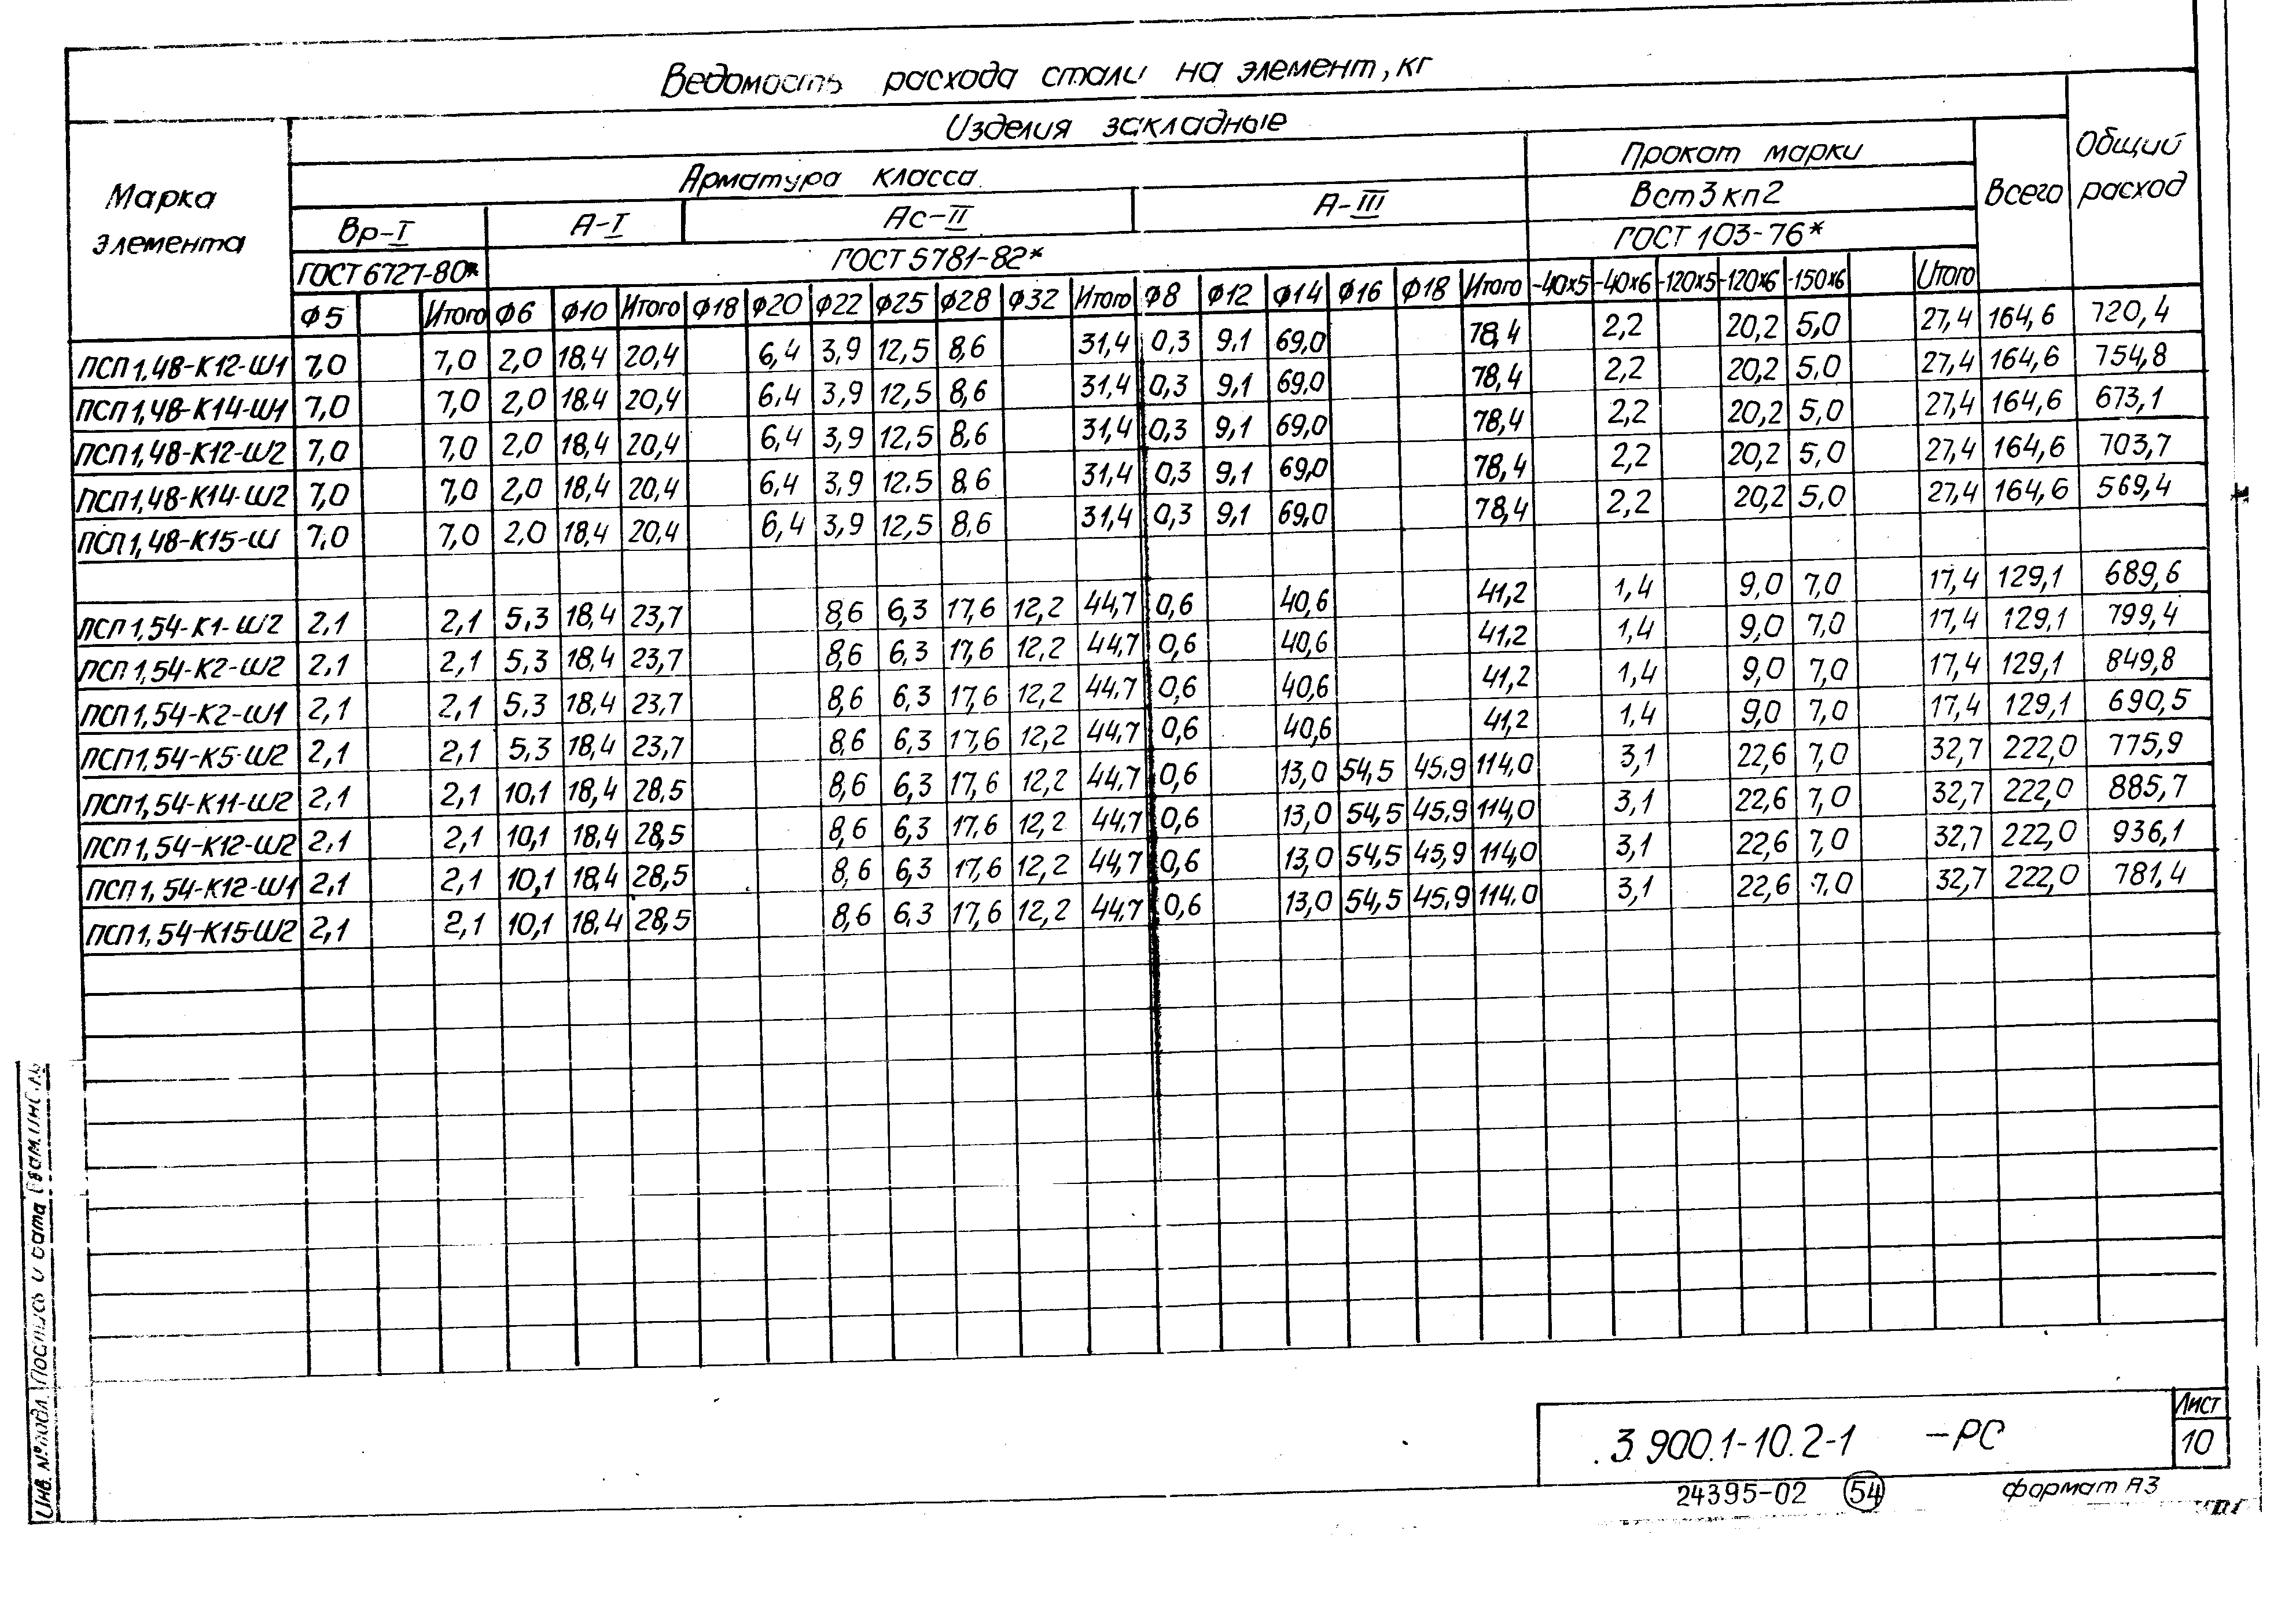 Ведомость расхода стали на элемент, кг
Марка элемента
Изделия закладные
Общий расход
Арматура класса
Прокат марки
Всего
Вр-I А-I Ас-II А-III Вст3кп2
ГОСТ 6727-80* ГОСТ 5781-82* ГОСТ 103-76*
Ф5 Итого Ф6 Ф10 Итого Ф18 Ф20 Ф22 Ф25 Ф28 Ф32 Итого Ф8 Ф12 Ф14 Ф16 Ф18 Итого -40х5 -40х6 -120х5 -120х6 -150х6 Итого
ПСП1,48-К12-Ш1 7,0 7,0 2,0 18,4 20,4 6,4 3,9 12,5 8,6 31,4 0,3 9,1 69,0 78,4 2,2 20,2 5,0 27,4 164,6 720,4
ПСП1,48-К14-Ш1 7,0 7,0 2,0 18,4 20,4 6,4 3,9 12,5 8,6 31,4 0,3 9,1 69,0 78,4 2,2 20,2 5,0 27,4 164,6 754,8
ПСП1,48-К12-Ш2 7,0 7,0 2,0 18,4 20,4 6,4 3,9 12,5 8,6 31,4 0,3 9,1 69,0 78,4 2,2 20,2 5,0 27,4 164,6 673,1
ПСП1,48-К14-Ш2 7,0 7,0 2,0 18,4 20,4 6,4 3,9 12,5 8,6 31,4 0,3 9,1 69,0 78,4 2,2 20,2 5,0 27,4 164,6 703,7
ПСП1,48-К15-Ш 7,0 7,0 2,0 18,4 20,4 6,4 3,9 12,5 8,6 31,4 0,3 9,1 69,0 78,4 2,2 20,2 5,0 27,4 164,6 569,4
ПСП1,54-К1-Ш2 2,1 2,1 5,3 18,4 23,7 8,6 6,3 17,6 12,2 44,7 0,6 40,6 41,2 1,4 9,0 7,0 17,4 129,1 689,6
ПСП1,54-К2-Ш2 2,1 2,1 5,3 18,4 23,7 8,6 6,3 17,6 12,2 44,7 0,6 40,6 41,2 1,4 9,0 7,0 17,4 129,1 799,4
ПСП1,54-К2-Ш1 2,1 2,1 5,3 18,4 23,7 8,6 6,3 17,6 12,2 44,7 0,6 40,6 41,2 1,4 9,0 7,0 17,4 129,1 849,8
ПСП1,54-К5-Ш2 2,1 2,1 5,3 18,4 23,7 8,6 6,3 17,6 12,2 44,7 0,6 40,6 41,2 1,4 9,0 7,0 17,4 129,1 690,5
ПСП1,54-К11-Ш2 2,1 2,1 10,1 18,4 28,5 8,6 6,3 17,6 12,2 44,7 0,6 13,0 54,5 45,9 114,0 3,1 22,6 7,0 32,7 222,0 775,9
ПСП1,54-К12-Ш2 2,1 2,1 10,1 18,4 28,5 8,6 6,3 17,6 12,2 44,7 0,6 13,0 54,5 45,9 114,0 3,1 22,6 7,0 32,7 222,0 885,7
ПСП1,54-К12-Ш1 2,1 2,1 10,1 18,4 28,5 8,6 6,3 17,6 12,2 44,7 0,6 13,0 54,5 45,9 114,0 3,1 22,6 7,0 32,7 222,0 936,1
ПСП1,54-К15-Ш2 2,1 2,1 10,1 18,4 28,5 8,6 6,3 17,6 12,2 44,7 0,6 13,0 54,5 45,9 114,0 3,1 22,6 7,0 32,7 222,0 781,4
Инв. № подл. Подпись и дата Взам. инв. №
3.900.1-10.2-1 -РС
Лист
10
24395-02 54
формат А3